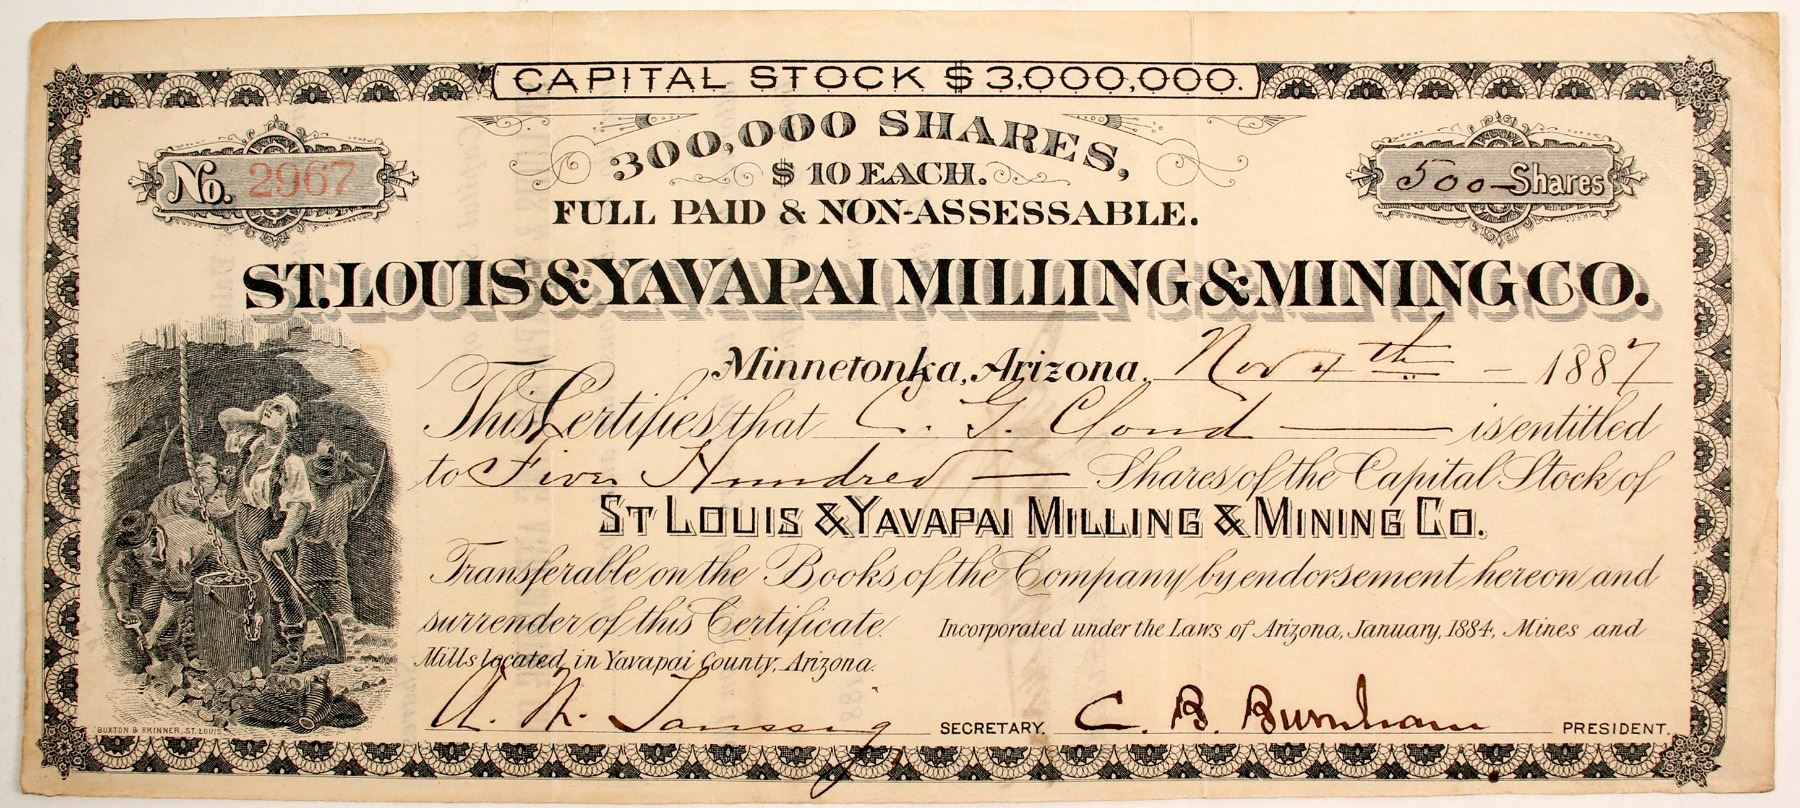 CAPITAL STOCK $3,000,000.
300,000 SHARES,
$10 EACH.
FULL PAID & NON-ASSESSABLE.
No. 2967
500 - Shares
ST. LOUIS & YAVAPAI MILLING & MINING CO.
Minnetonka, Arizona, Nov 4th - 1887
This Certifies that C. G. Cloud is entitled
to Five Hundred - Shares of the Capital Stock of
ST LOUIS & YAVAPAI MILLING & MINING CO.
Transferable on the Books of the Company by endorsement hereon and
surrender of this Certificate. Incorporated under the Laws of Arizona, January, 1884, Mines and
Mills located in Yavapai County, Arizona.
SECRETARY. C. B. Burnham PRESIDENT.
BUXTON & SKINNER, ST. LOUIS